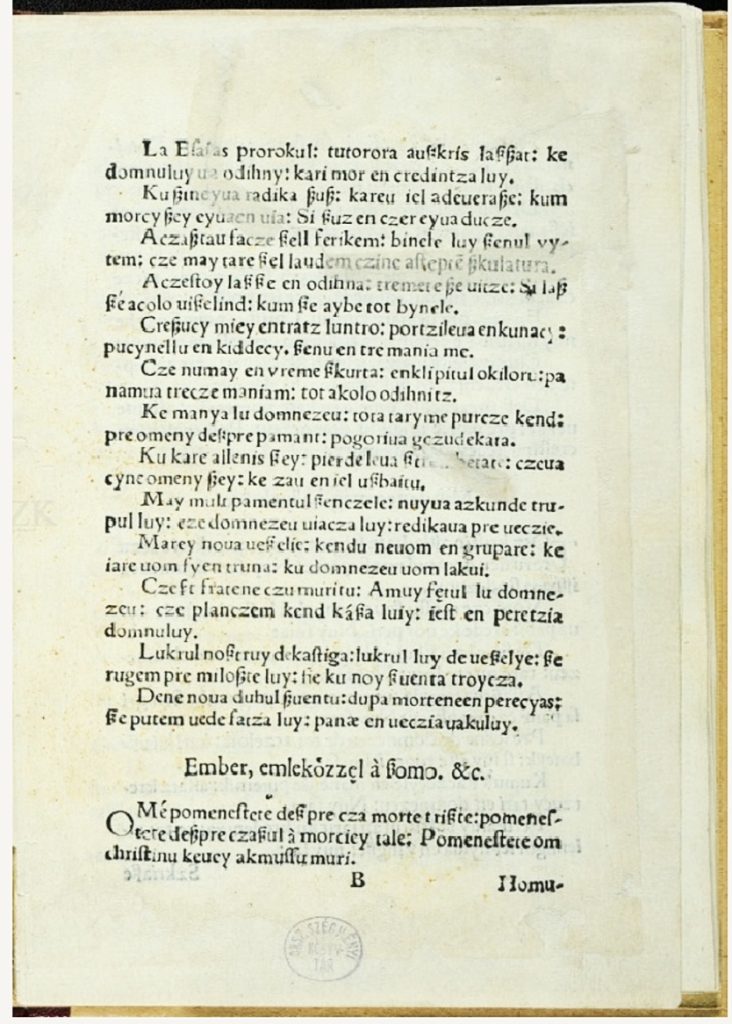 La Esaias prorokul: tutorora auſkris laſſat: ke
domnuluy ua odihny: kari mor en credintza luy.
Ku ſzineyua radika ſzuſz: kareu iel adeueraſze: kum
morcy ſzey eyuaen uia: Si ſkuz en czer eyua ducze.
Aczaſtau facze ſzell ferikem: binele luy ſzenul vy-
tem: cze may tare ſzel laudem czinc aſteptẽ ſkulatura.
Aczeſtoy laſſe en odihna: tremete ſze uitze: Si laſz
ſze acolo uiſzelind: kum ſze aybe tot bynele.
Creſzucy miey entratz luntro: portzileua enkunacz:
pucynellu en kiddecy. ſzenu en tre mania me.
Cze numay en vreme ſkurta: enklipitul okiloru: pa
namua trecze maniam: tot akolo odihnitz.
Ke manya lu domnezeu: tota taryme purcze kend:
pre omeny deſpre pamant: pogoriua gezudekata.
Ku kare allenis ſzey: pierdeleua : czeua
cyne omeny ſzey: ke zau en iel uſzbaitu.
May mult pamentul ſzenczele: nuyua azkunde tru-
pul luy: cze domnezeu uiacza luy: redikaua pre ueczie.
Marey noua ueſzelie: kendu neuom en grupare: ke
iare uom fyen truna: ku domnezeu uom lakui.
Czeſt fratene czu muritu: A muy fetul lu domne-
zeu: cze planczem kend káſza luiy: ieſt en peretzia
domnuluy.
Lukrul noſtruy dekaſtiga: lukrul luy de ueſzelye: ſze
rugem pre miloſzte luy: fie ku noy ſzuenta troycza.
Dene noua duhul ſzuentu: dupa morteneen perecyas:
ſze putem uede fatza luy: panæ en ueczia uakuluy.
Ember, emlekőzzęl à ſzomo. &c.
OMé pomeneſtete deſpre cza morte triſzte: pomeneſ-
tete deſpre czaſzul à morciey tale: Pomeneſtete om
chriſtinu keucy ak muſſu muri.
B
Homu-
ORSZ. SZÉCHÉNYI
KÖNYV-
TÁR